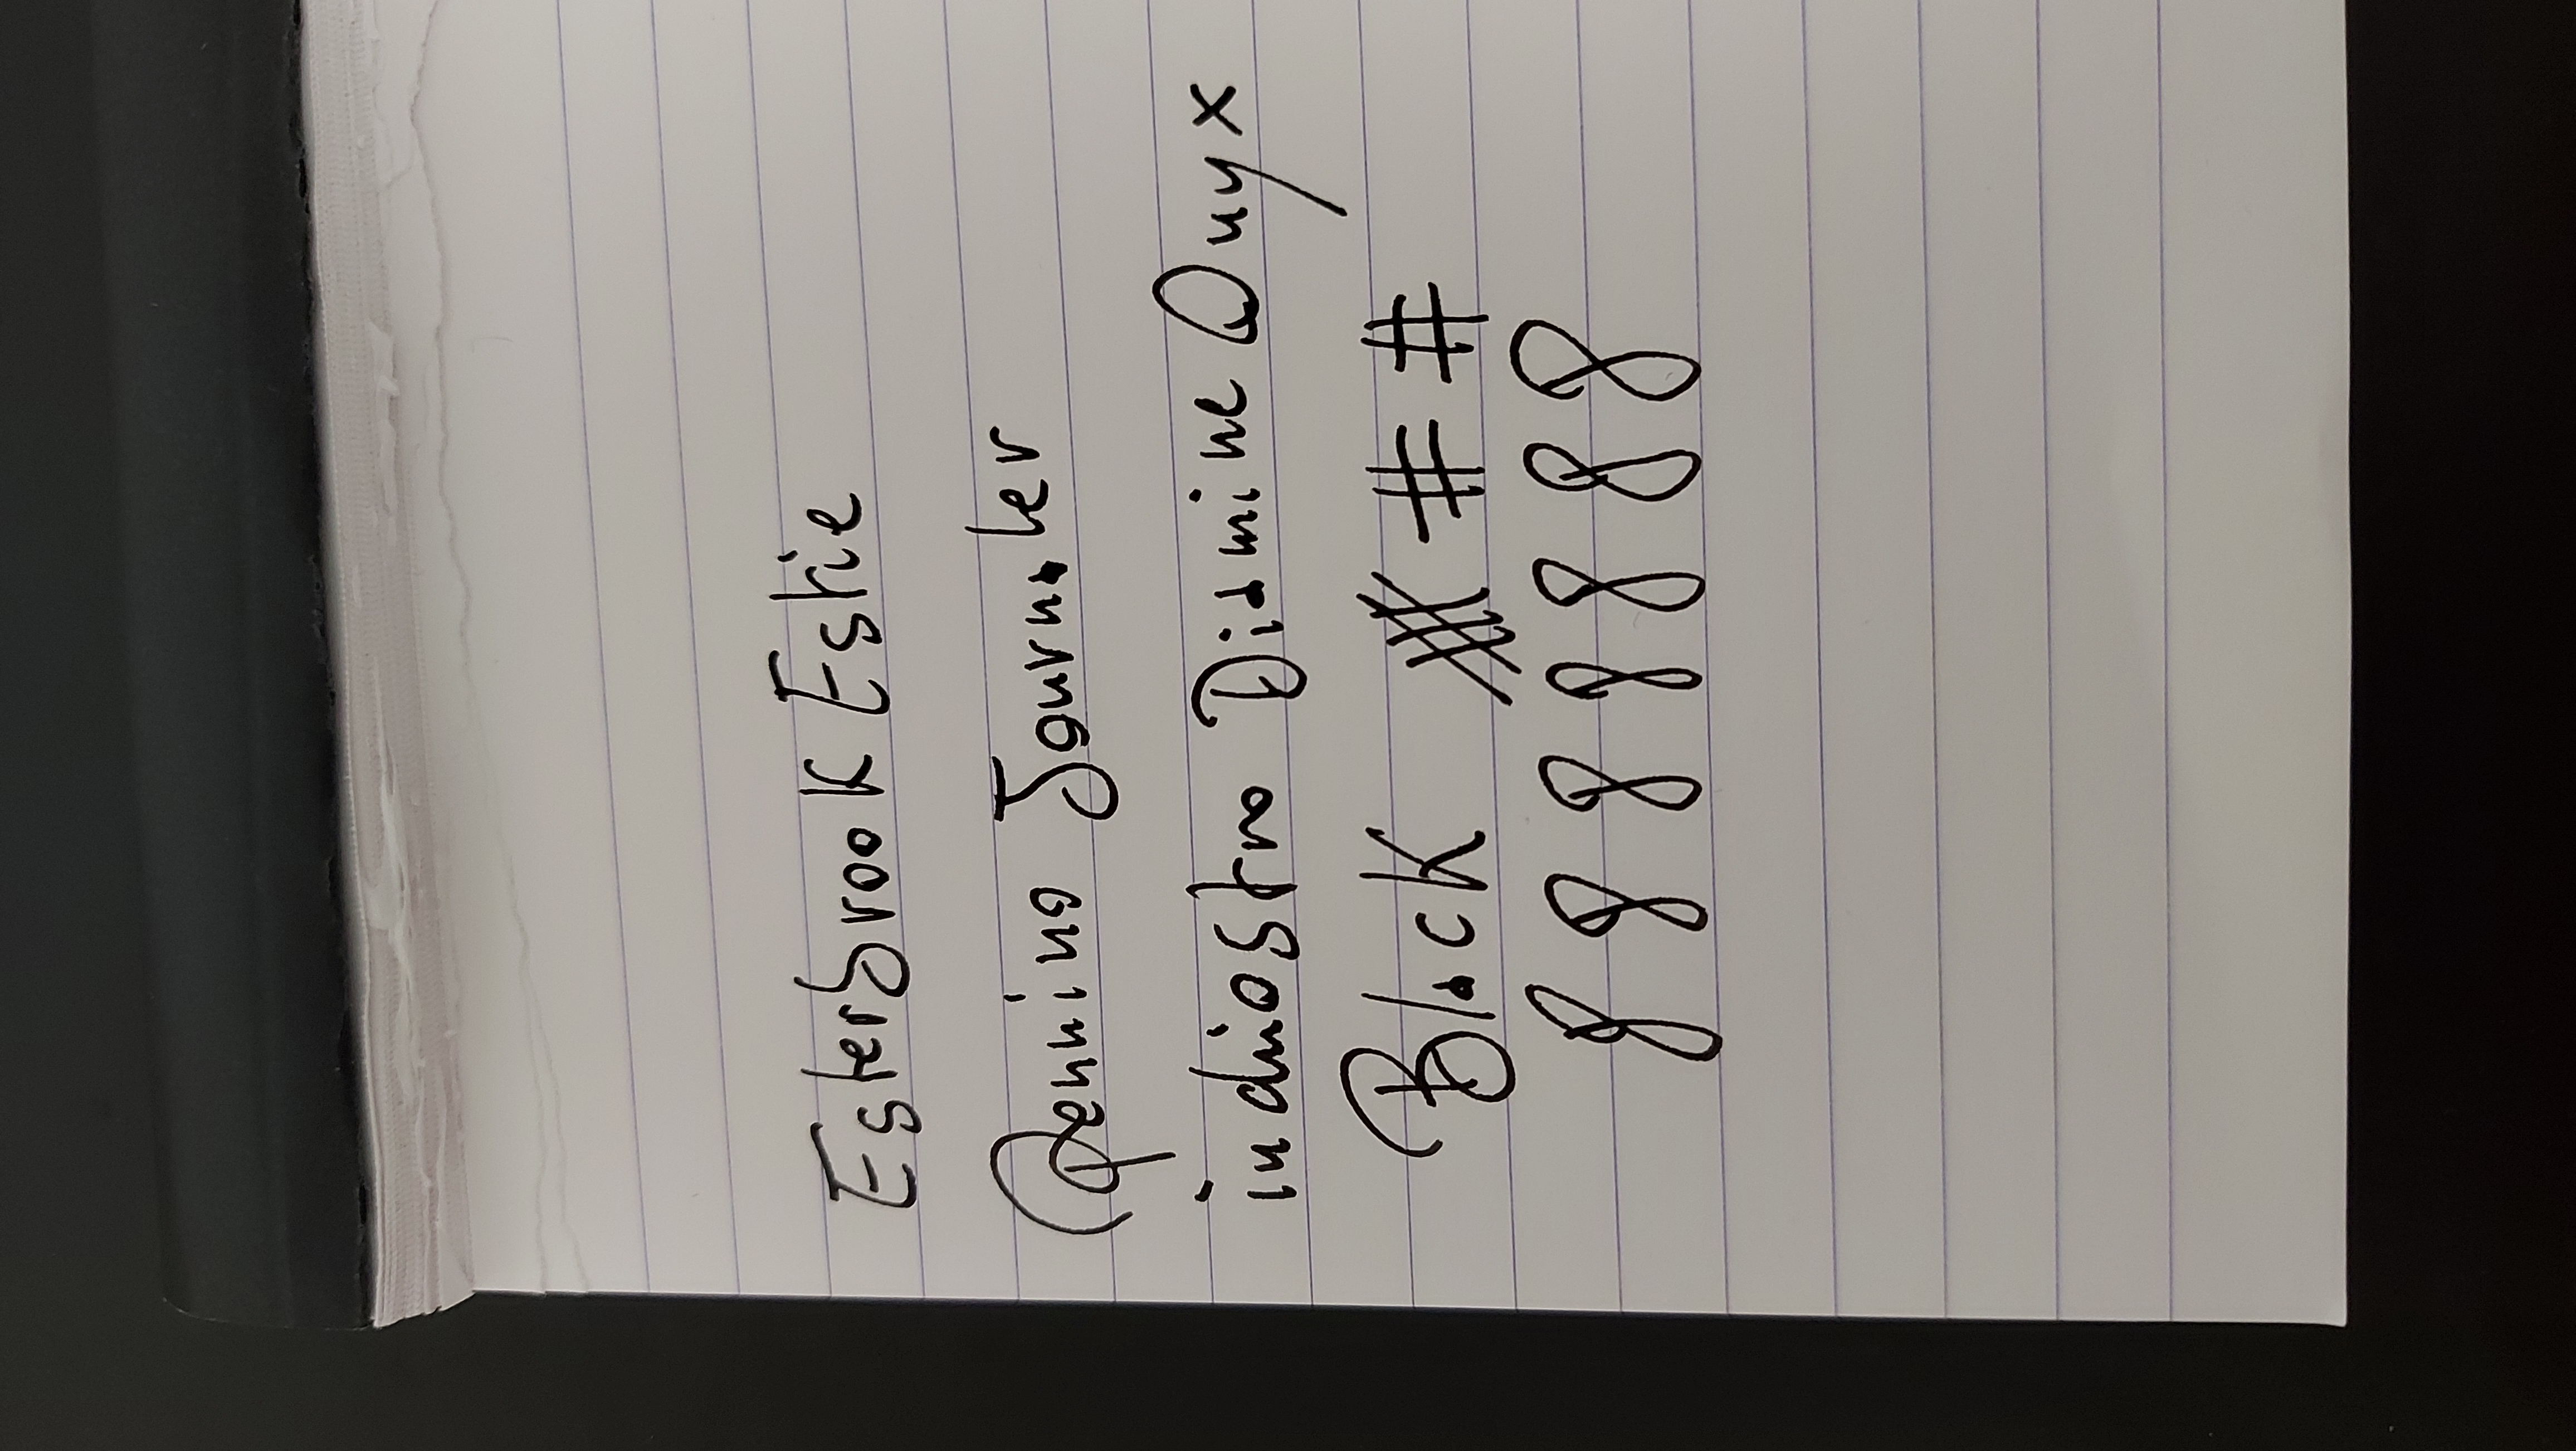 Esterbrook Estie
Pennino Journaler
inchiostro Diamine Onyx
Black # # #
8 8 8 8 8 8 8